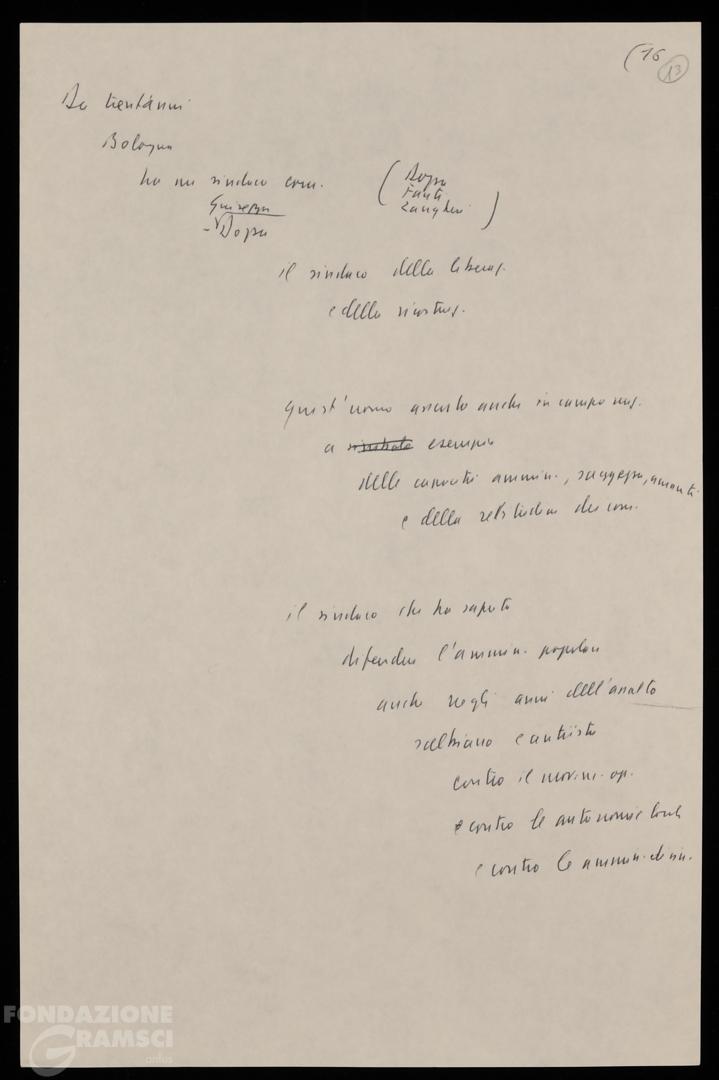 (16
13
Da trent'anni
Bologna
ha un sindaco com.
(Dozza
Fanti
Zangheri)
Giuseppe
- Dozza
il sindaco della liberaz.
e della ricostruz.
Quest'uomo assurto anche in campo naz.
a simbolo esempio
delle capacità ammin., saggezza, umanità
e della rettitudine dei com.
il sindaco che ha saputo
difendere l'ammin. popolare
anche negli anni dell'assalto
scelbiano
contro il movim. op.
e contro le autonomie locali
e contro le ammin. di sin.
FONDAZIONE
GRAMSCI
onlus